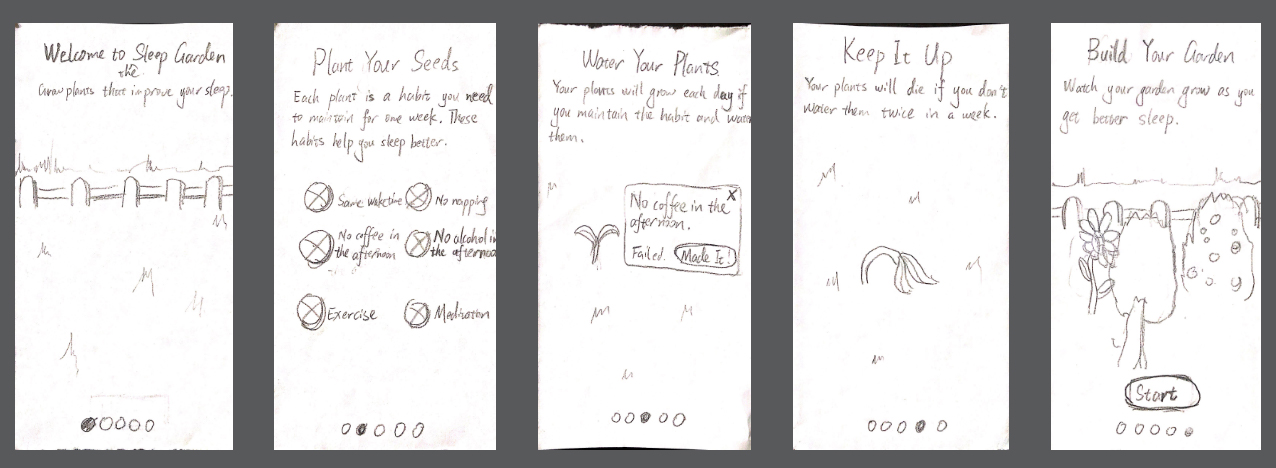 Welcome to Sleep Garden
the
Grow plants that improve your sleep.
Plant Your Seeds
Each plant is a habit you need
to maintain for one week. These
habits help you sleep better.
Same waketime
No napping
No coffee in
the afternoon
No alcohol in
the afternoon
Exercise
Meditation
Water Your Plants
Your plants will grow each day if
you maintain the habit and water
them.
No coffee in the
afternoon.
X
Failed.
Made It!
Keep It Up
Your plants will die if you don't
water them twice in a week.
Build Your Garden
Watch your garden grow as you
get better sleep.
Start